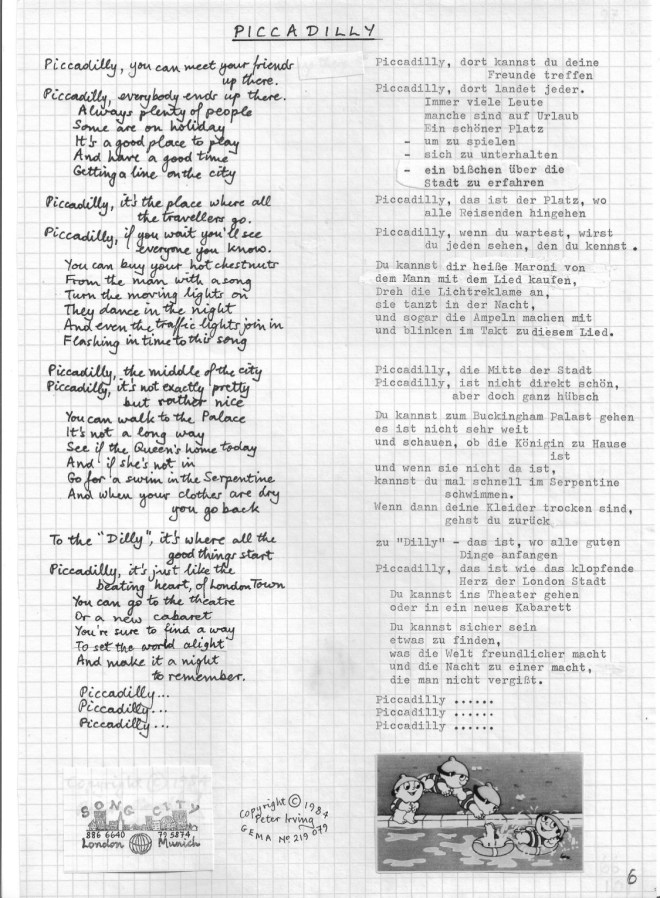 PICCADILLY
Piccadilly, you can meet your friends
up there.
Piccadilly, everybody ends up there.
Always plenty of people
Some are on holiday
It's a good place to play
And have a good time
Getting a line on the city
Piccadilly, it's the place where all
the travellers go.
Piccadilly, if you wait you'll see
everyone you know.
You can buy your hot chestnuts
From the man with a song
Turn the moving lights on
They dance in the night
And even the traffic lights join in
Flashing in time to this song
Piccadilly, the middle of the city
Piccadilly, it's not exactly pretty
but rather nice
You can walk to the Palace
It's not a long way
See if the Queen's home today
And if she's not in
Go for a swim in the Serpentine
And when your clothes are dry
you go back
To the "Dilly", it's where all the
good things start
Piccadilly, it's just like the
beating heart, of London Town
You can go to the theatre
Or a new cabaret
You're sure to find a way
To set the world alight
And make it a night
to remember.
Piccadilly...
Piccadilly...
Piccadilly...
Piccadilly, dort kannst du deine
Freunde treffen
Piccadilly, dort landet jeder.
Immer viele Leute
manche sind auf Urlaub
Ein schöner Platz
- um zu spielen
- sich zu unterhalten
- ein bißchen über die
Stadt zu erfahren
Piccadilly, das ist der Platz, wo
alle Reisenden hingehen
Piccadilly, wenn du wartest, wirst
du jeden sehen, den du kennst.
Du kannst dir heiße Maroni von
dem Mann mit dem Lied kaufen,
Dreh die Lichtreklame an,
sie tanzt in der Nacht,
und sogar die Ampeln machen mit
und blinken im Takt zu diesem Lied.
Piccadilly, die Mitte der Stadt
Piccadilly, ist nicht direkt schön,
aber doch ganz hübsch
Du kannst zum Buckingham Palast gehen
es ist nicht sehr weit
und schauen, ob die Königin zu Hause
ist
und wenn sie nicht da ist,
kannst du mal schnell im Serpentine
schwimmen.
Wenn dann deine Kleider trocken sind,
gehst du zurück
zu "Dilly" - das ist, wo alle guten
Dinge anfangen
Piccadilly, das ist wie das klopfende
Herz der London Stadt
Du kannst ins Theater gehen
oder in ein neues Kabarett
Du kannst sicher sein
etwas zu finden,
was die Welt freundlicher macht
und die Nacht zu einer macht,
die man nicht vergißt.
Piccadilly ......
Piccadilly ......
Piccadilly ......
SONG CITY
886 6640 79 5874
London Munich
Copyright © 1984
Peter Irving
GEMA No 219 079
6